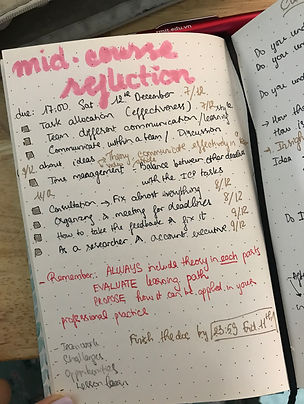 mid-course
reflection
due: 17:00 Sat 12th December 7/12
Task allocation (effectiveness) 7/12
Team different communication/learning style
Communicate within a team / Discussion
9/12 about ideas → Theory communicate effectively in a
Time management - Balance between other deadlines
11/12 with the ICP tasks
Consultation → Fix almost everything 8/12
Organizing A meeting for deadlines 8/12
How to take the feedback & fix it 9/12
As a researcher & account executive 9/12
- Remember: ALWAYS include theory in each parts
EVALUATE learning path
PROPOSE how it can be applied in your
professional practice
- Teamwork
- Challenges
- Opportunities
- Lesson learn
Finish the doc by 23:59 Frid 11th!
unit.edu.vn
Do you
Do you
How
How is
Idea